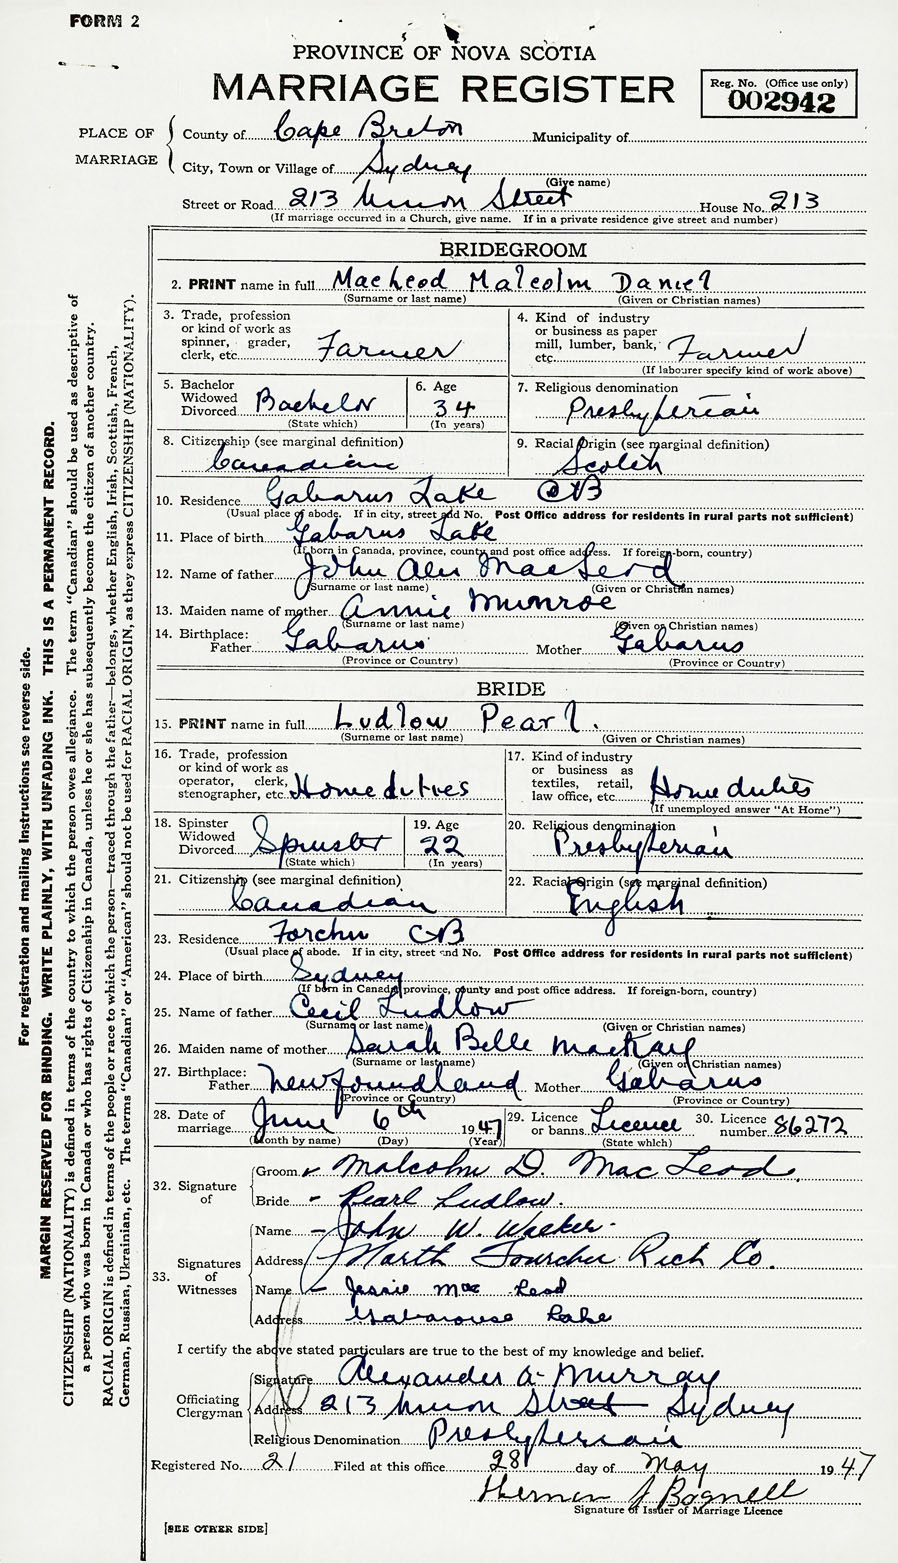 FORM 2
PROVINCE OF NOVA SCOTIA
MARRIAGE REGISTER
Reg. No. (Office use only)
002942
PLACE OF MARRIAGE
County of Cape Breton Municipality of
City, Town or Village of Sydney
(Give name)
Street or Road 213 Union Street House No. 213
(If marriage occurred in a Church, give name. If in a private residence give street and number)
BRIDEGROOM
2. PRINT name in full MacLeod Malcolm Daniel
(Surname or last name) (Given or Christian names)
3. Trade, profession or kind of work as spinner, grader, clerk, etc. Farmer
4. Kind of industry or business as paper mill, lumber, bank, etc. Farmer
(If labourer specify kind of work above)
5. Bachelor Widowed Divorced Bachelor
(State which)
6. Age 34
(In years)
7. Religious denomination
Presbyterian
8. Citizenship (see marginal definition)
Canadian
9. Racial Origin (see marginal definition)
Scotch
10. Residence Gabarus Lake CB
(Usual place of abode. If in city, street and No. Post Office address for residents in rural parts not sufficient)
11. Place of birth Gabarus Lake
(If born in Canada, province, county and post office address. If foreign-born, country)
12. Name of father John Alex MacLeod
(Surname or last name) (Given or Christian names)
13. Maiden name of mother Annie Munroe
(Surname or last name) (Given or Christian names)
14. Birthplace: Father Gabarus Mother Gabarus
(Province or Country) (Province or Country)
BRIDE
15. PRINT name in full Ludlow Pearl.
(Surname or last name) (Given or Christian names)
16. Trade, profession or kind of work as operator, clerk, stenographer, etc. Home duties
17. Kind of industry or business as textiles, retail, law office, etc. Home duties
(If unemployed answer "At Home")
18. Spinster Widowed Divorced Spinster
(State which)
19. Age 22
(In years)
20. Religious denomination
Presbyterian
21. Citizenship (see marginal definition)
Canadian
22. Racial Origin (see marginal definition)
English
23. Residence Forchu CB
(Usual place of abode. If in city, street and No. Post Office address for residents in rural parts not sufficient)
24. Place of birth Sydney
(If born in Canada, province, county and post office address. If foreign-born, country)
25. Name of father Cecil Ludlow
(Surname or last name) (Given or Christian names)
26. Maiden name of mother Sarah Belle MacKay
(Surname or last name) (Given or Christian names)
27. Birthplace: Father Newfoundland Mother Gabarus
(Province or Country) (Province or Country)
28. Date of marriage June 6th 1947
(Month by name) (Day) (Year)
29. Licence or banns Licence
(State which)
30. Licence number 86272
32. Signature of
Groom Malcolm D. MacLeod.
Bride - Pearl Ludlow.
33. Signatures of Witnesses
Name - John W. Walker.
Address North Fourchu Rich Co.
Name Jessie Mac Leod
Address Gabarouse Lake
I certify the above stated particulars are true to the best of my knowledge and belief.
Officiating Clergyman
Signature Alexander A. Murray
Address 213 Union Street Sydney
Religious Denomination Presbyterian
Registered No. 21 Filed at this office 28 day of May 1947
Herman J Bagnell
Signature of Issuer of Marriage Licence
[SEE OTHER SIDE]
For registration and mailing instructions see reverse side.
MARGIN RESERVED FOR BINDING. WRITE PLAINLY, WITH UNFADING INK. THIS IS A PERMANENT RECORD.
CITIZENSHIP (NATIONALITY) is defined in terms of the country to which the person owes allegiance. The term "Canadian" should be used as descriptive of
a person who was born in Canada or who has rights of Citizenship in Canada, unless he or she has subsequently become the citizen of another country.
RACIAL ORIGIN is defined in terms of the people or race to which the person—traced through the father—belongs, whether English, Irish, Scottish, French,
German, Russian, Ukrainian, etc. The terms "Canadian" or "American" should not be used for RACIAL ORIGIN, as they express CITIZENSHIP (NATIONALITY).